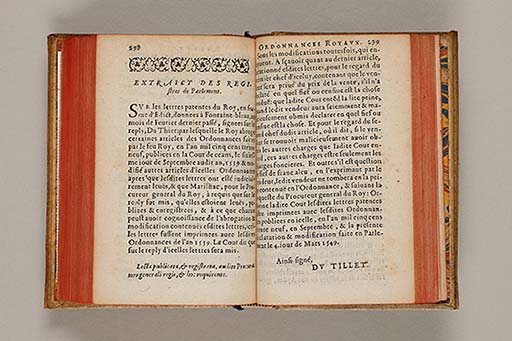 298
EXTRAICT DES REGI-
stres de Parlement.
SVR les lettres patentes du Roy, en for-
me d'Edict, donnees à Fontainebleau, au
mois de Feurier dernier passé, signees sur le
reply, Du Thier: par lesquelle le Roy abroge
certains articles des Ordonnances faites
par le feu Roy, en l'an mil cinq cens trente
neuf, publiees en la Cour de ceans, le sixies-
me de Septembre audit an, 1539 & mo-
difié autres articles d'icelles Ordonnances
apres que lesdites lettres ont esté judiciai-
rement leuës, & que Marilhac, pour le Pro-
cureur general du Roy, à requis que sur le
reply fut mis, qu'elles estoient leuës, pu-
bliees & enregistrees, & à ce que chacun
peust auoir cognoissance de l'abrogation &
modification contenuës esdites lettres, que
les lettres fussent imprimees auec lesdites
Ordonnances de l'an 1539. La Cour dit que
sur le reply d'icelles lettres sera mis.
Lecta publicata, & registrata, audito Procura-
tore generali regis, & hoc requirente.
ORDONNANCES ROYAVX. 299
sous les modifications toutesfois, qui en-
suiuent. A sçauoir quant au dernier article,
mentionné esdites lettres, pour le regard du
chef d'iceluy, contenant que le ven-
deur sera priué du prix de la vente, s'il n'a
declaré en quel fief ou censiue est la chose
venduë: que ladite Cour entend la dite peine,
quand ledit vendeur aura sciemment & ma-
licieusement obmis declarer en quel fief ou
censiue est la chose. Et pour le regard du se-
cond chef dudit article, où il dit, si le ven-
deur se trouuoit malicieusement auoir ob-
mis les autres charges que ladite Cour en-
tend, ces autres charges estre seulement les
charges foncieres. Et outre s'il est question
de franc aleu, en l'exprimant par le
vendeur, ledit vendeur ne tombera en la pei-
ne contenuë en l'Ordonnance, & suiuant la
requeste du Procureur general du Roy: Or-
donne ladite Cour lesdites lettres patentes
estre imprimees auec lesdites Ordonnan-
ces publiees en icelle, en l'an mil cinq cens
trente neuf, en Septembre, & la presente
declaration & modification faite en Parle-
ment le 4. iour de Mars 1549.
Ainsi signé,
DV TILLET.